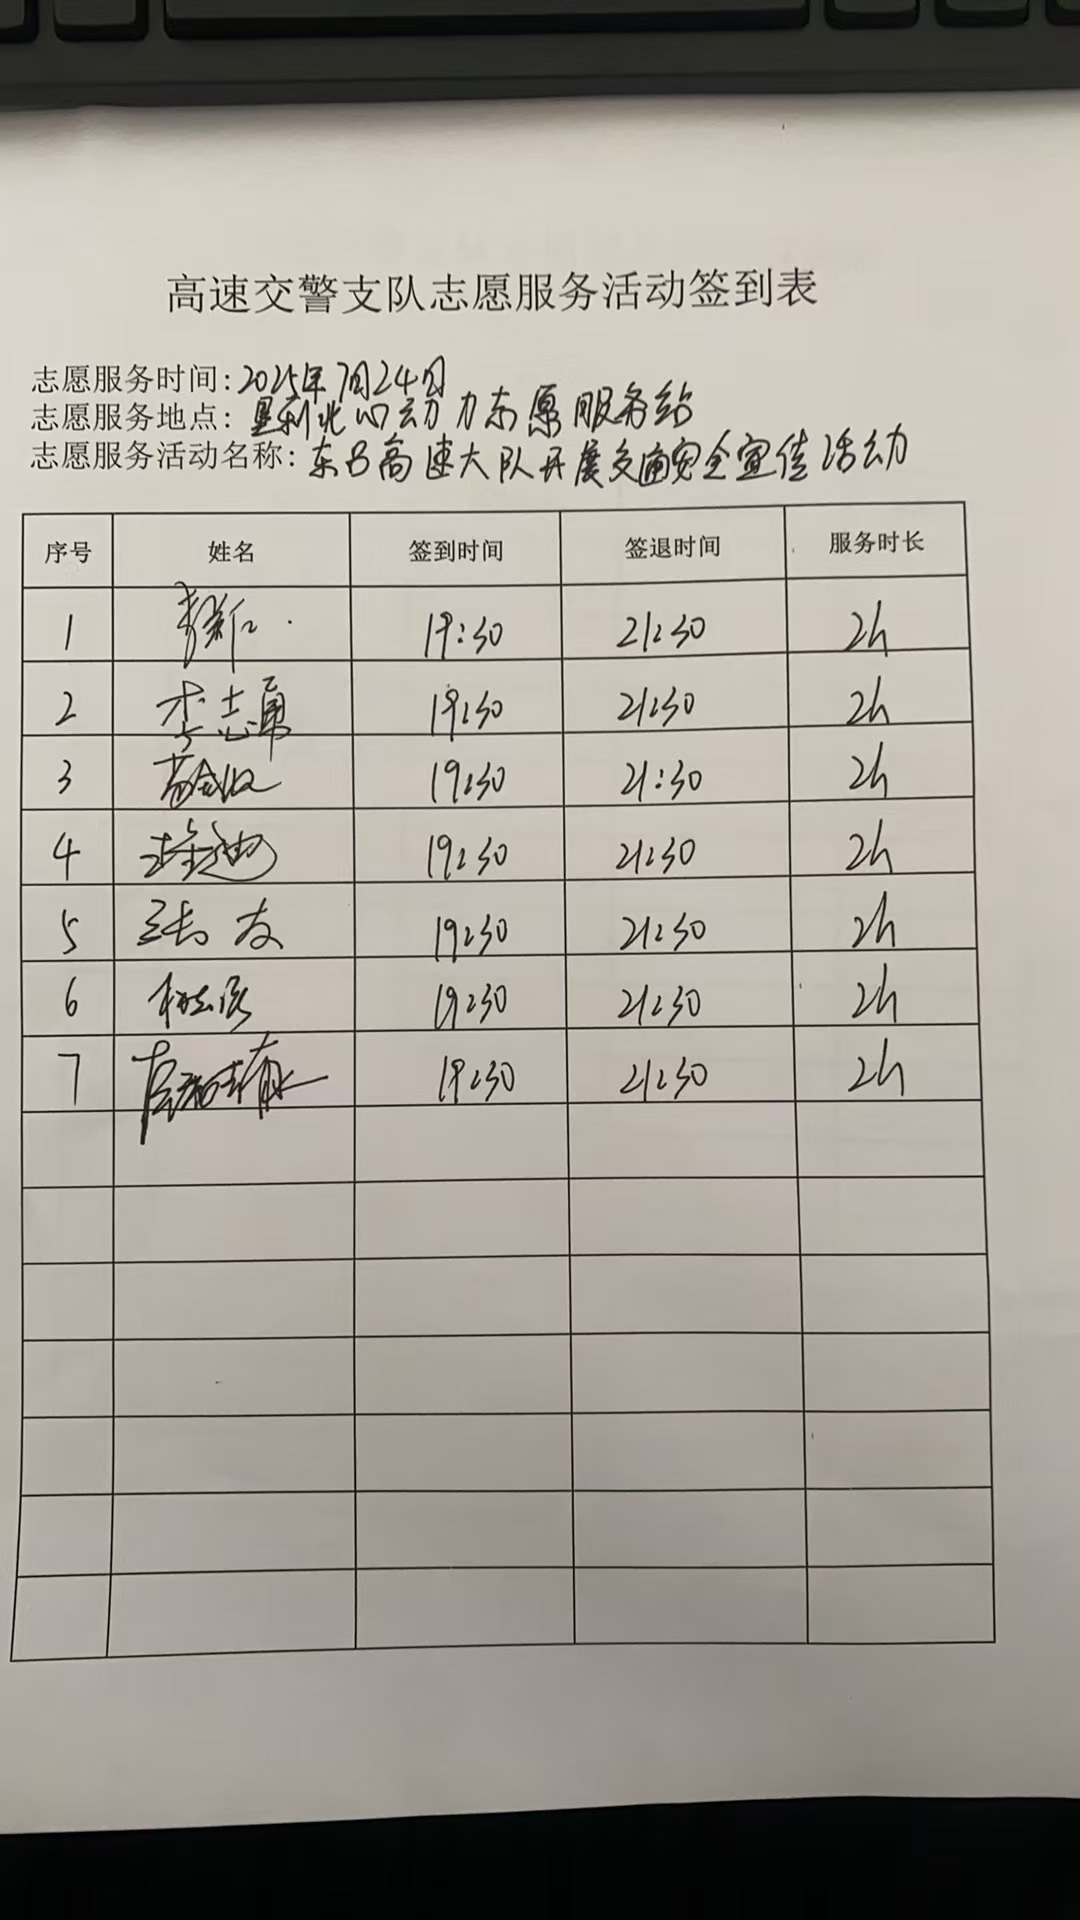 高速交警支队志愿服务活动签到表
志愿服务时间:2025年7月24日
志愿服务地点:垦利北 动力 志愿服务站
志愿服务活动名称:东吕高速大队开展交通安全宣传活动
序号 姓名 签到时间 签退时间 服务时长
1 19:30 21:30 2h
2 李志勇 19:30 21:30 2h
3 19:30 21:30 2h
4 19:30 21:30 2h
5 19:30 21:30 2h
6 19:30 21:30 2h
7 19:30 21:30 2h